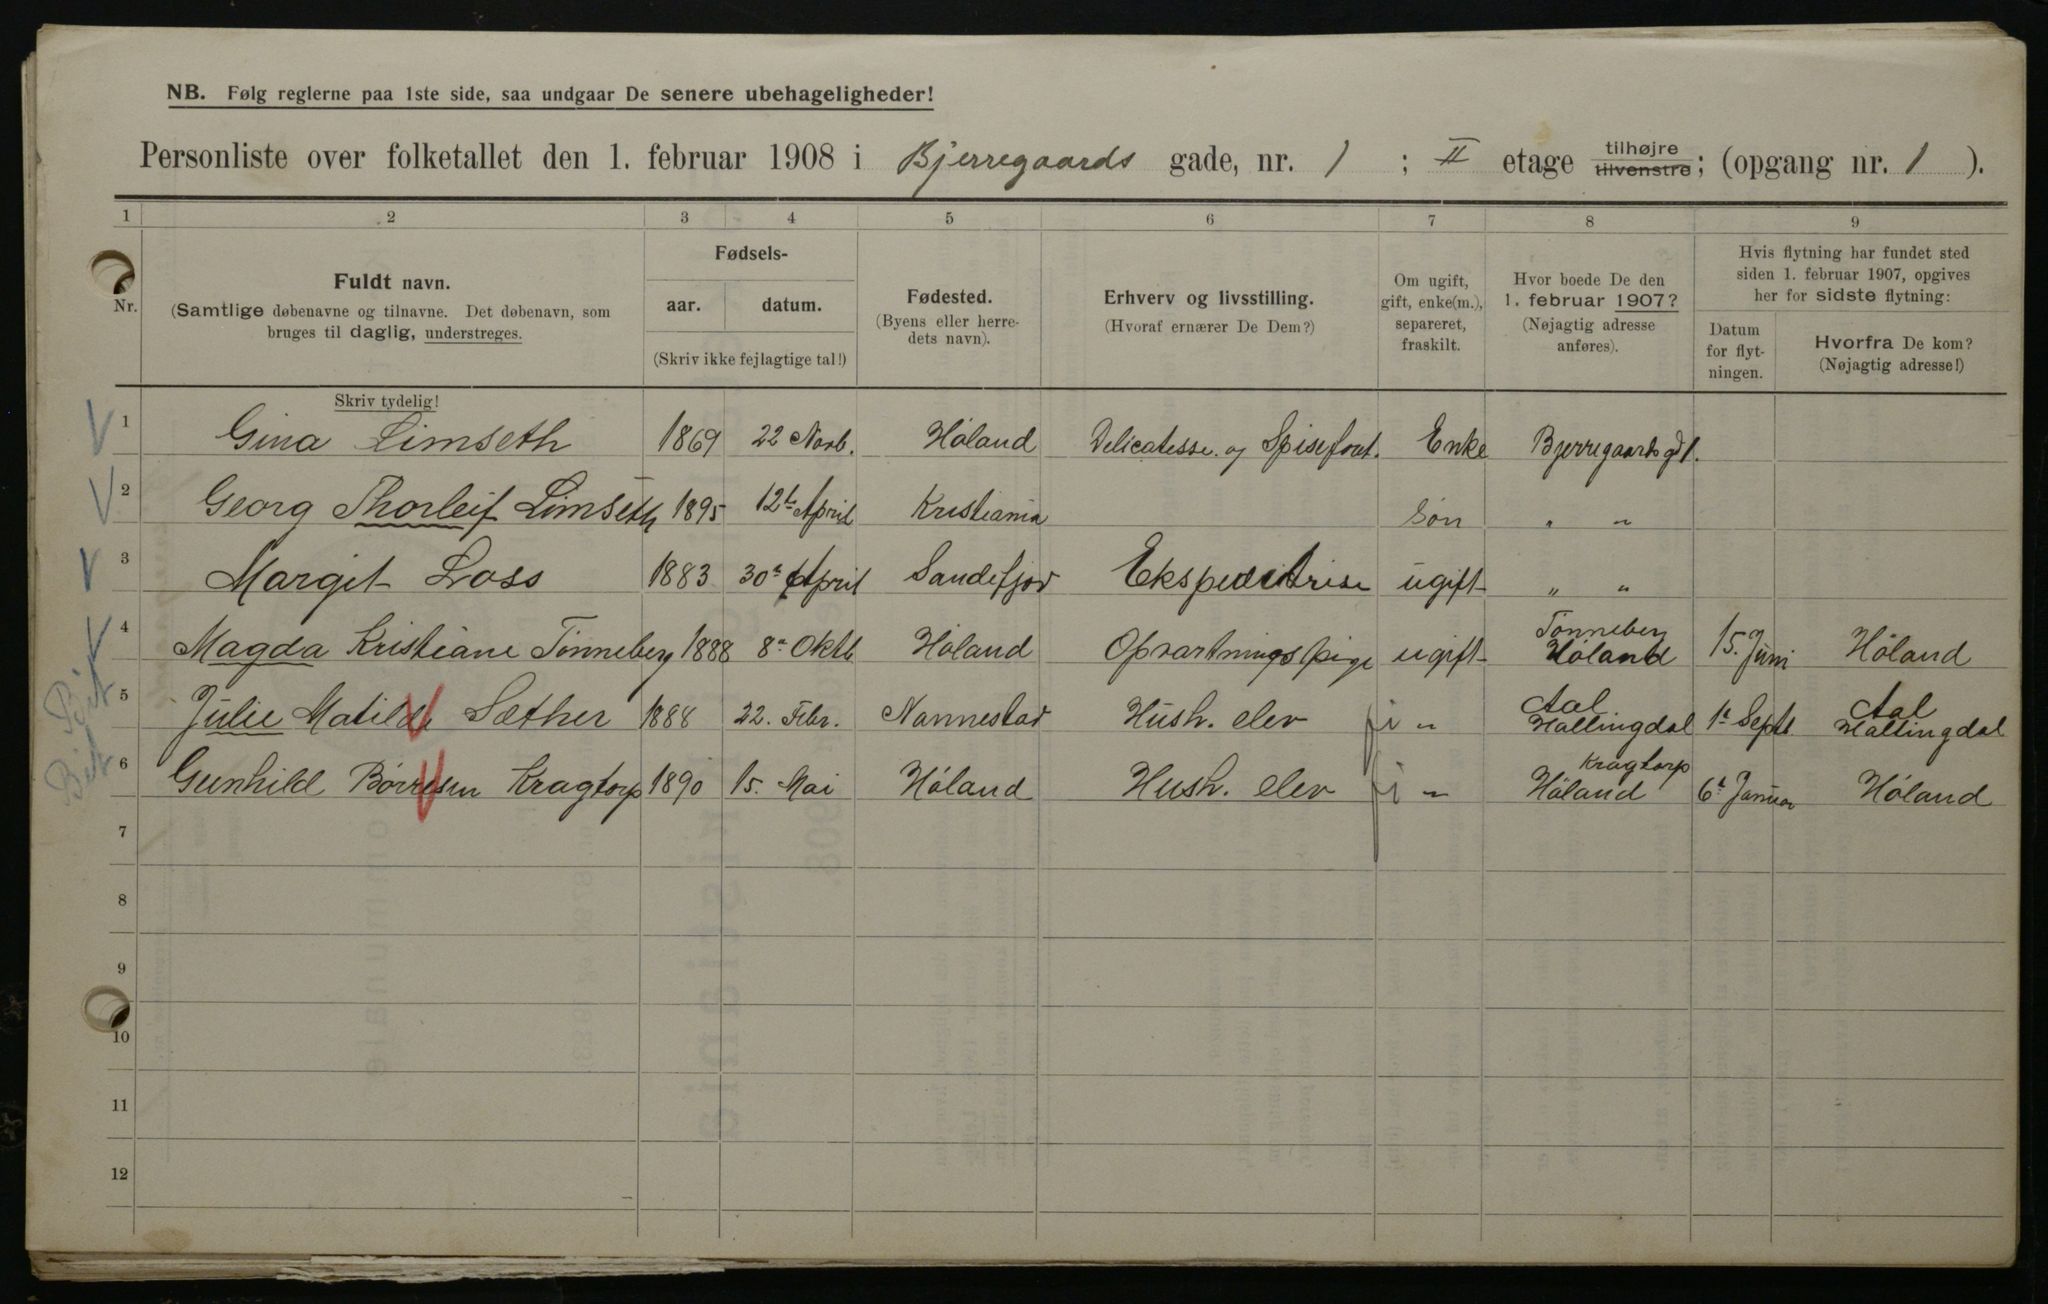 NB. Følg reglerne paa 1ste side, saa undgaar De senere ubehageligheder!
Personliste over folketallet den 1. februar 1908 i Bjerregaards gade, nr. 1 ; II etage tilhøjre tilvenstre; (opgang nr. 1 ).
1 2 3 4 5 6 7 8 9
Nr.
Fuldt navn.
(Samtlige døbenavne og tilnavne. Det døbenavn, som
bruges til daglig, understreges.
Skriv tydelig!
Fødsels-
aar. datum.
(Skriv ikke fejlagtige tal!)
Fødested.
(Byens eller herre-
dets navn).
Erhverv og livsstilling.
(Hvoraf ernærer De Dem?)
Om ugift,
gift, enke(m.),
separeret,
fraskilt.
Hvor boede De den
1. februar 1907?
(Nøjagtig adresse
anføres).
Hvis flytning har fundet sted
siden 1. februar 1907, opgives
her for sidste flytning:
Datum
for flyt-
ningen.
Hvorfra De kom?
(Nøjagtig adresse!)
1 Gina Limseth 1869 22 Novb. Høland Delicatesse. og Spiseforr. Enke Bjerregaardsgd 1.
2 Georg Thorleif Limseth 1895 12te April Kristiania Søn " "
3 Margit Loss 1883 30te April Sandefjord Ekspeditrise ugift " "
4 Magda Kristiane Tønneberg 1888 8de Oktb Høland Opvartningspige ugift Tønneberg Høland 15. Juni Høland
5 Julie Matilde Sæther 1888 22. Febr. Nannestad Hush. elev " Aal Hallingdal 1ste Septb. Aal Hallingdal
6 Gunhild Børresen Kragtorp 1890 15. Mai Høland Hush. elev " Kragtorp Høland 6te Januar Høland
7
8
9
10
11
12